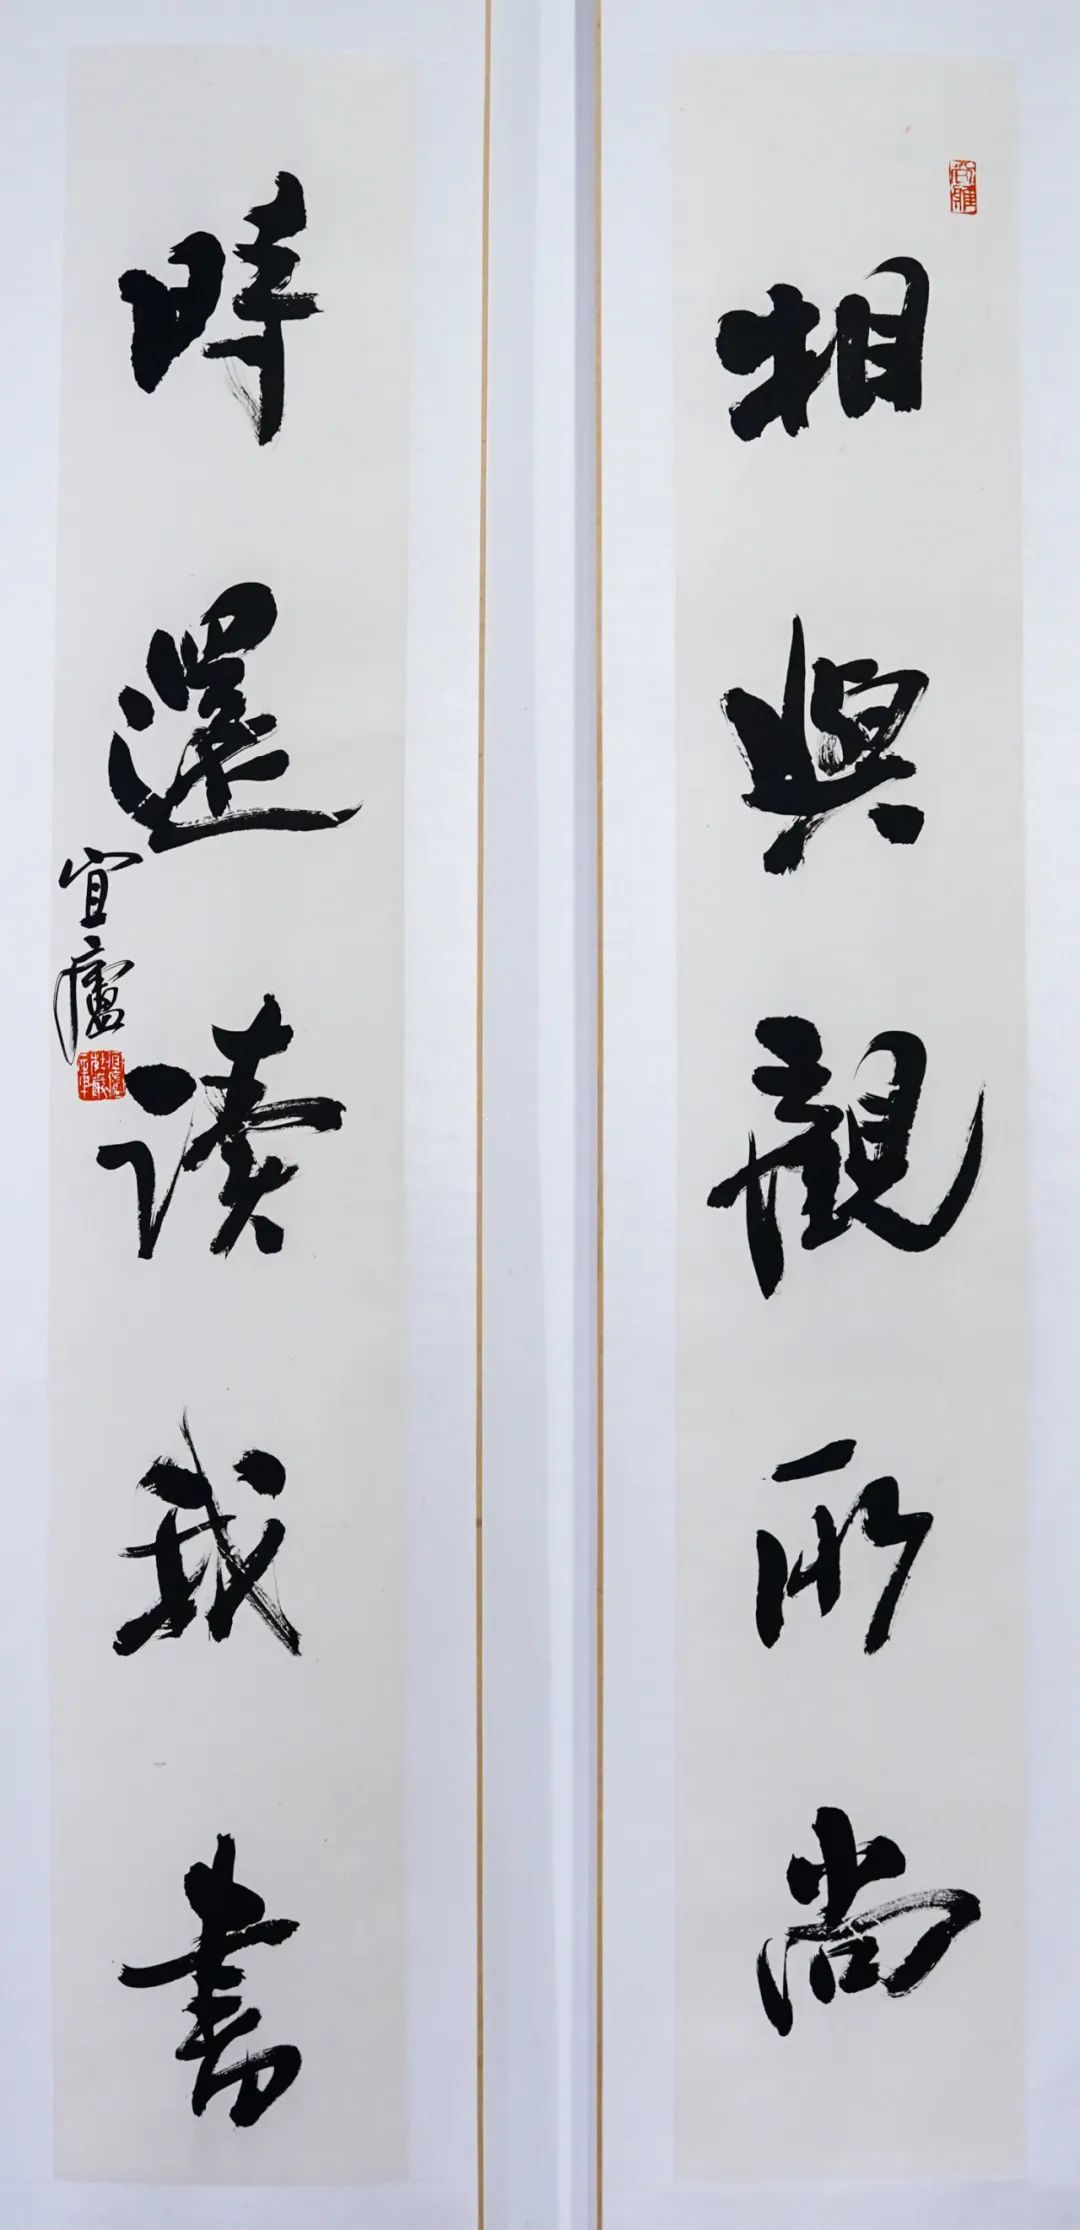 相與觀所尚
時還读我書
宜廬